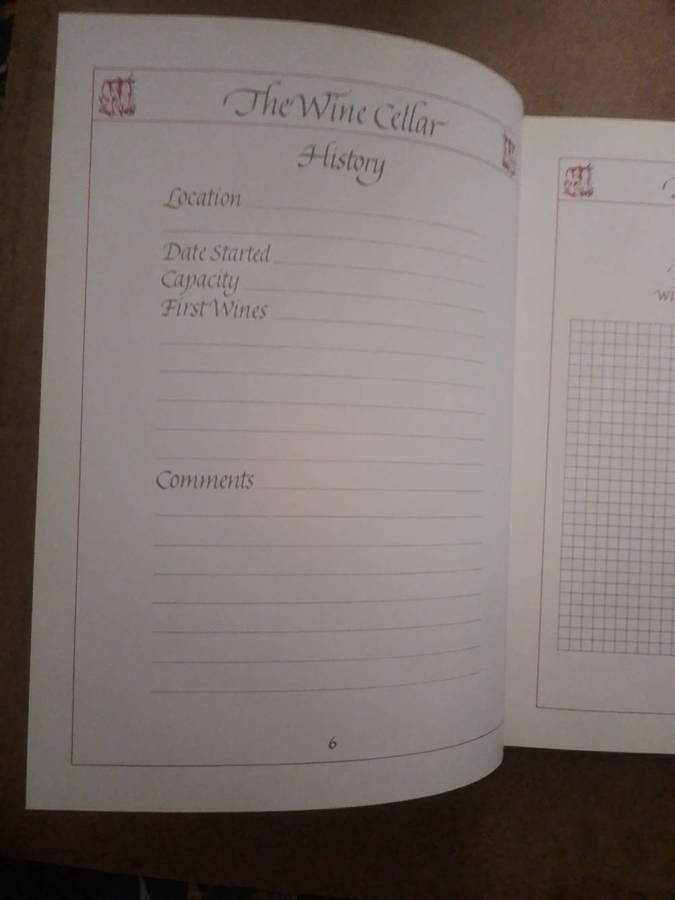 The Wine Cellar
History
Location
Date Started
Capacity
First Wines
Comments
6